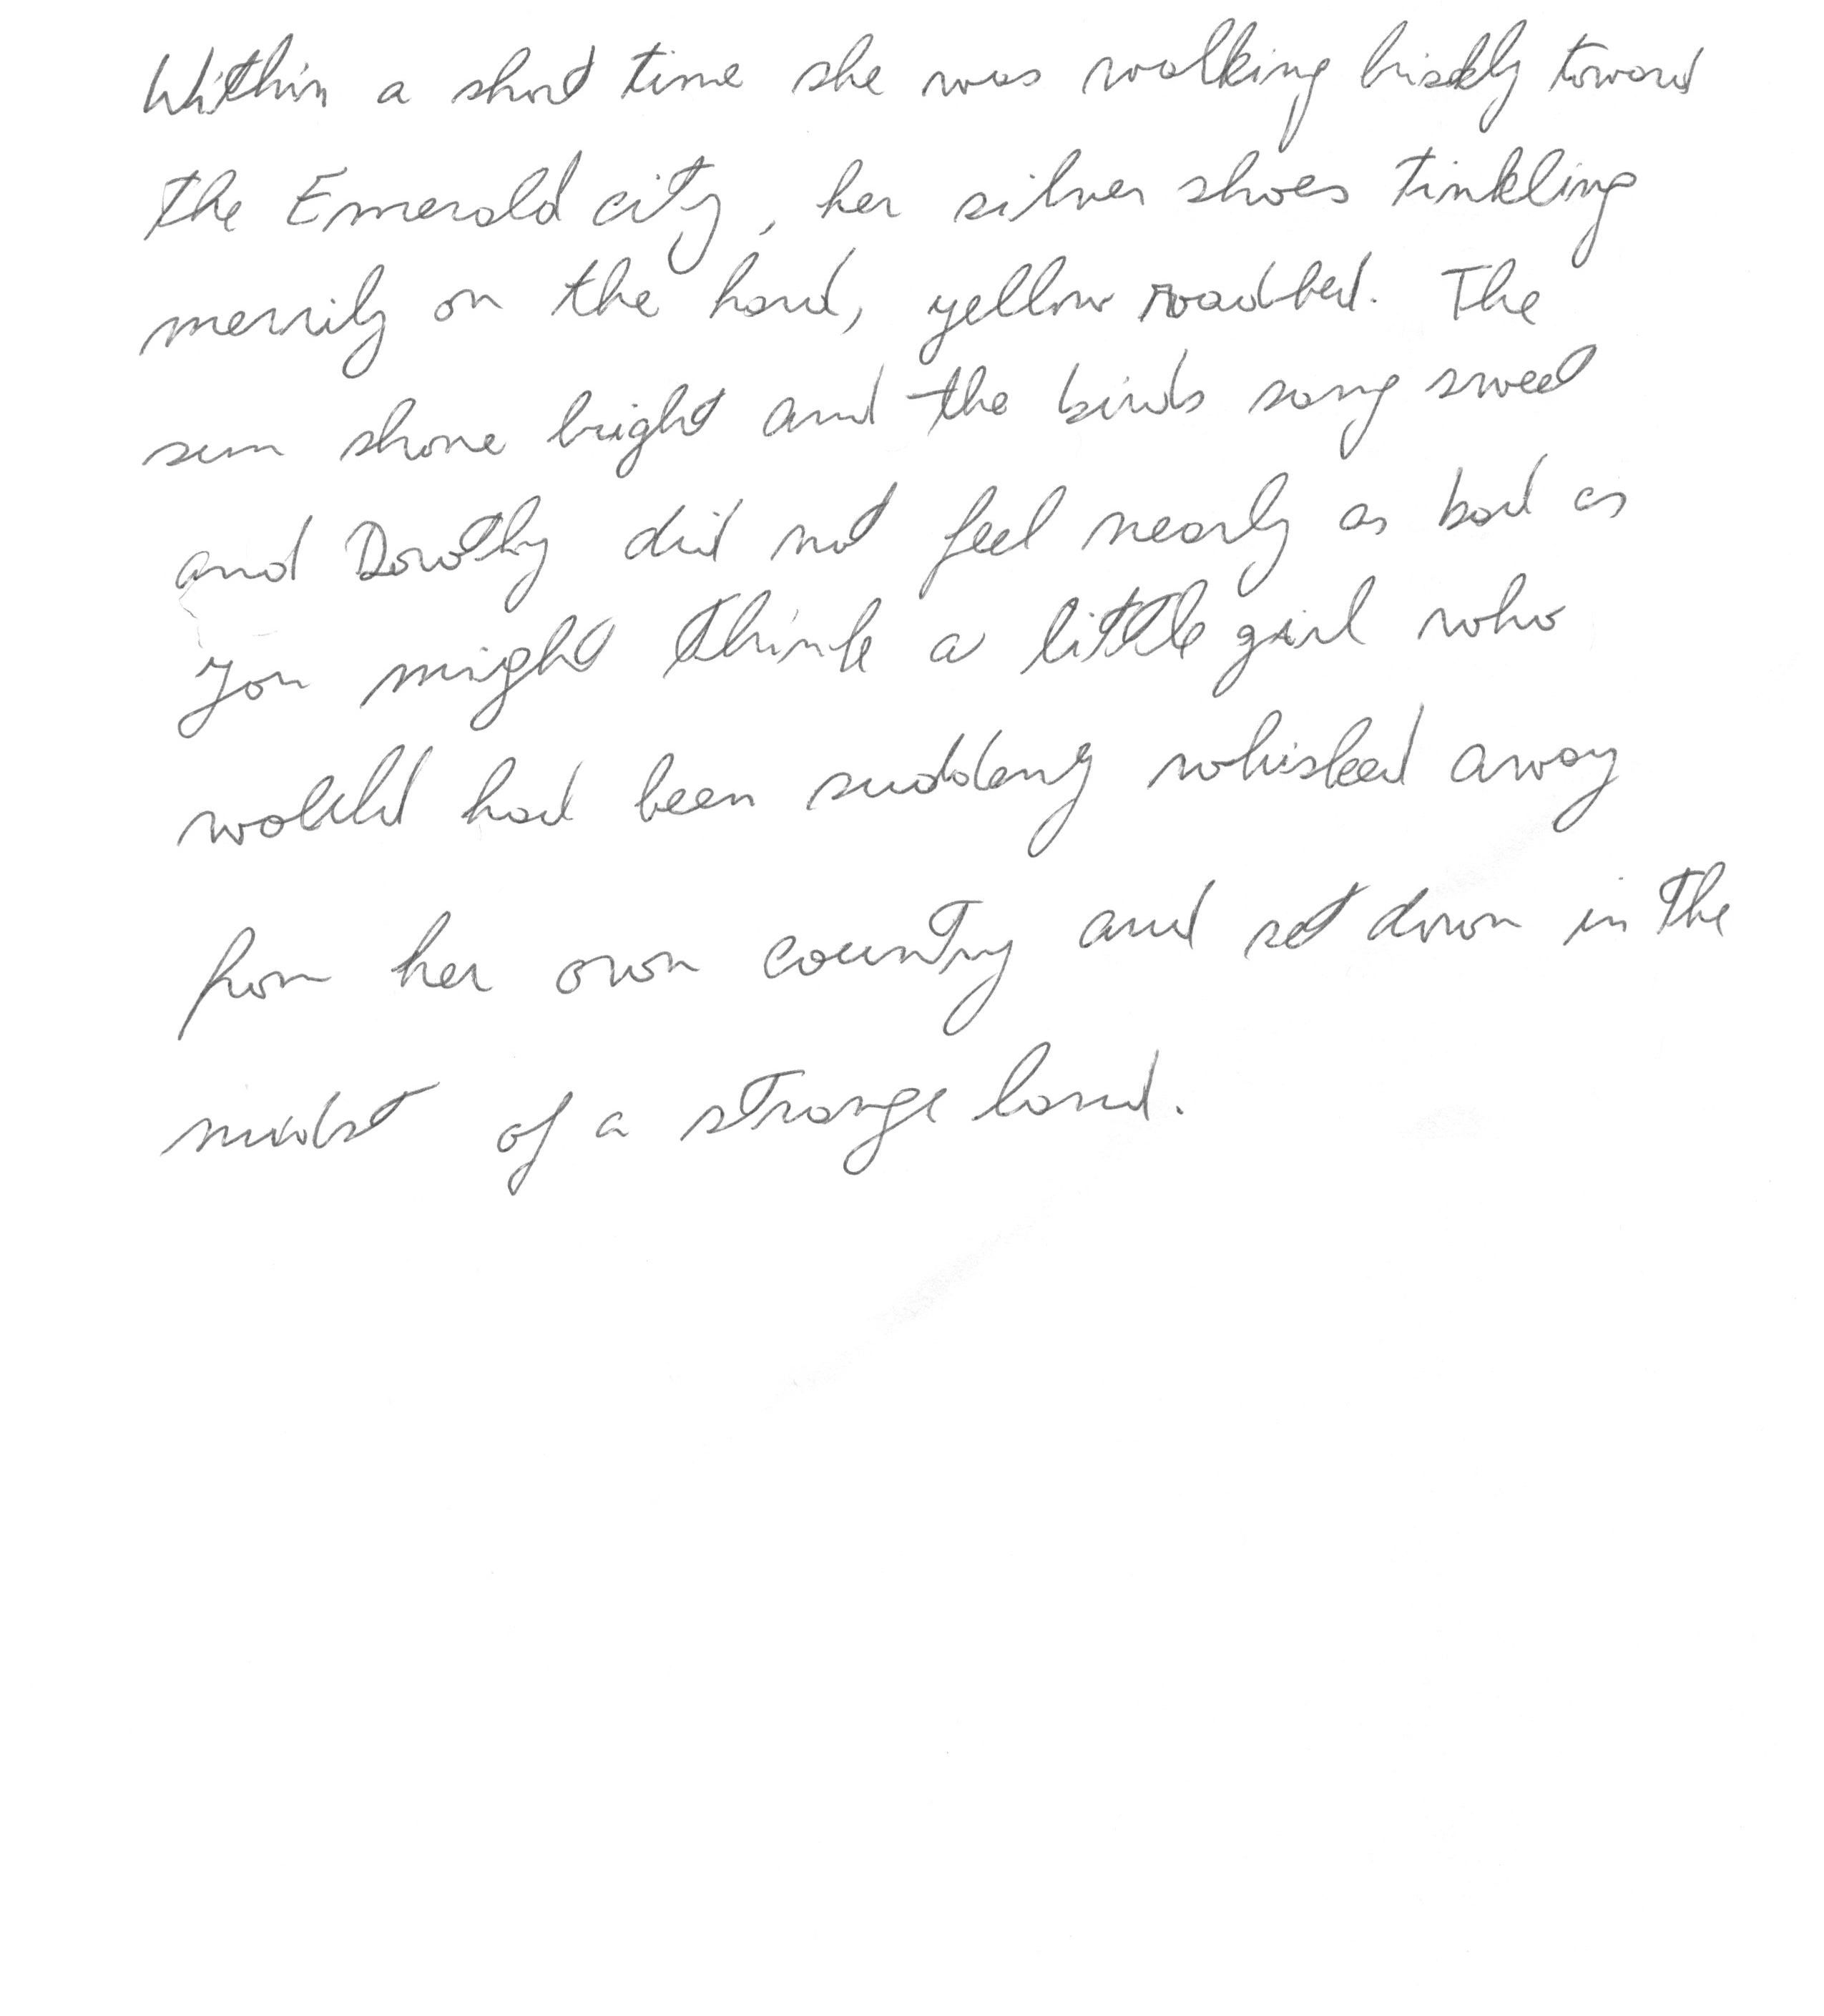 Within a short time she was walking briskly toward
the Emerald city, her silver shoes tinkling
merrily on the hard, yellow roadbed. The
sun shone bright and the birds sang sweet
and Dorothy did not feel nearly as bad as
you might think a little girl who
would had been suddenly whisked away
from her own country and set down in the
midst of a strange land.